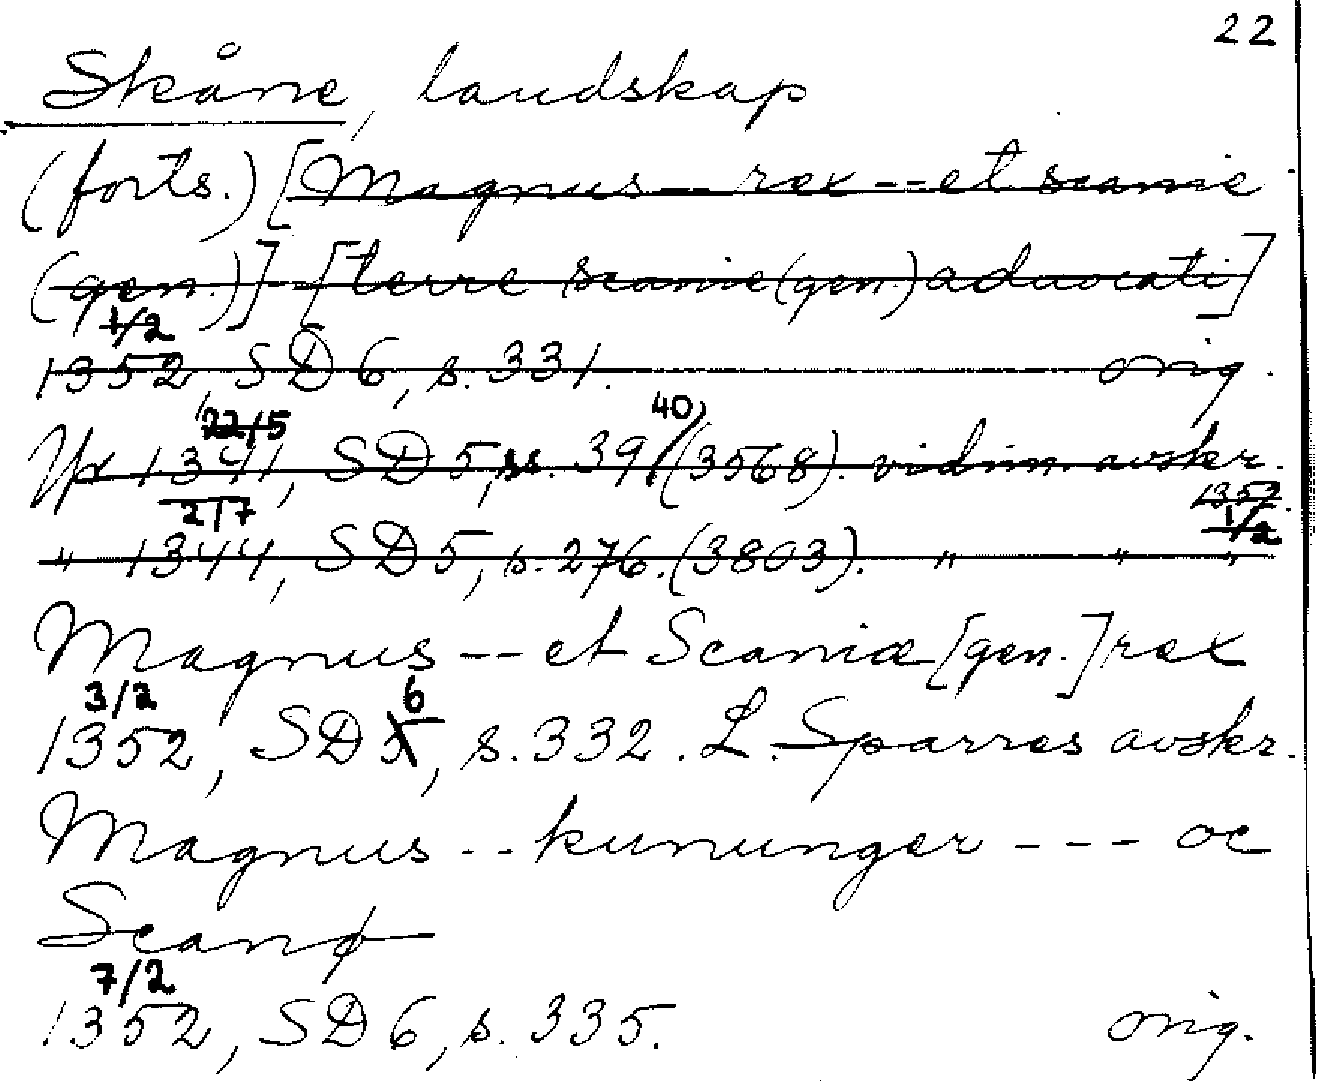 22
Skåne, landskap
(forts.) [Magnus -- rex -- et scanie
(gen.)] - [terre scanie (gen.) aduocati]
1/2
1352, SD 6, s. 331. orig.
22/5 40
1341, SD 5, s. 39/(3568). vidim. avskr.
2/7 1352
1/2
" 1344, SD 5, s. 276. (3803). " " "
Magnus -- et Scaniæ [gen.] rex
3/2 6
1352, SD 5, s. 332. L. Sparres avskr.
Magnus -- kununger --- oc
Scanø
7/2
1352, SD 6, s. 335. orig.